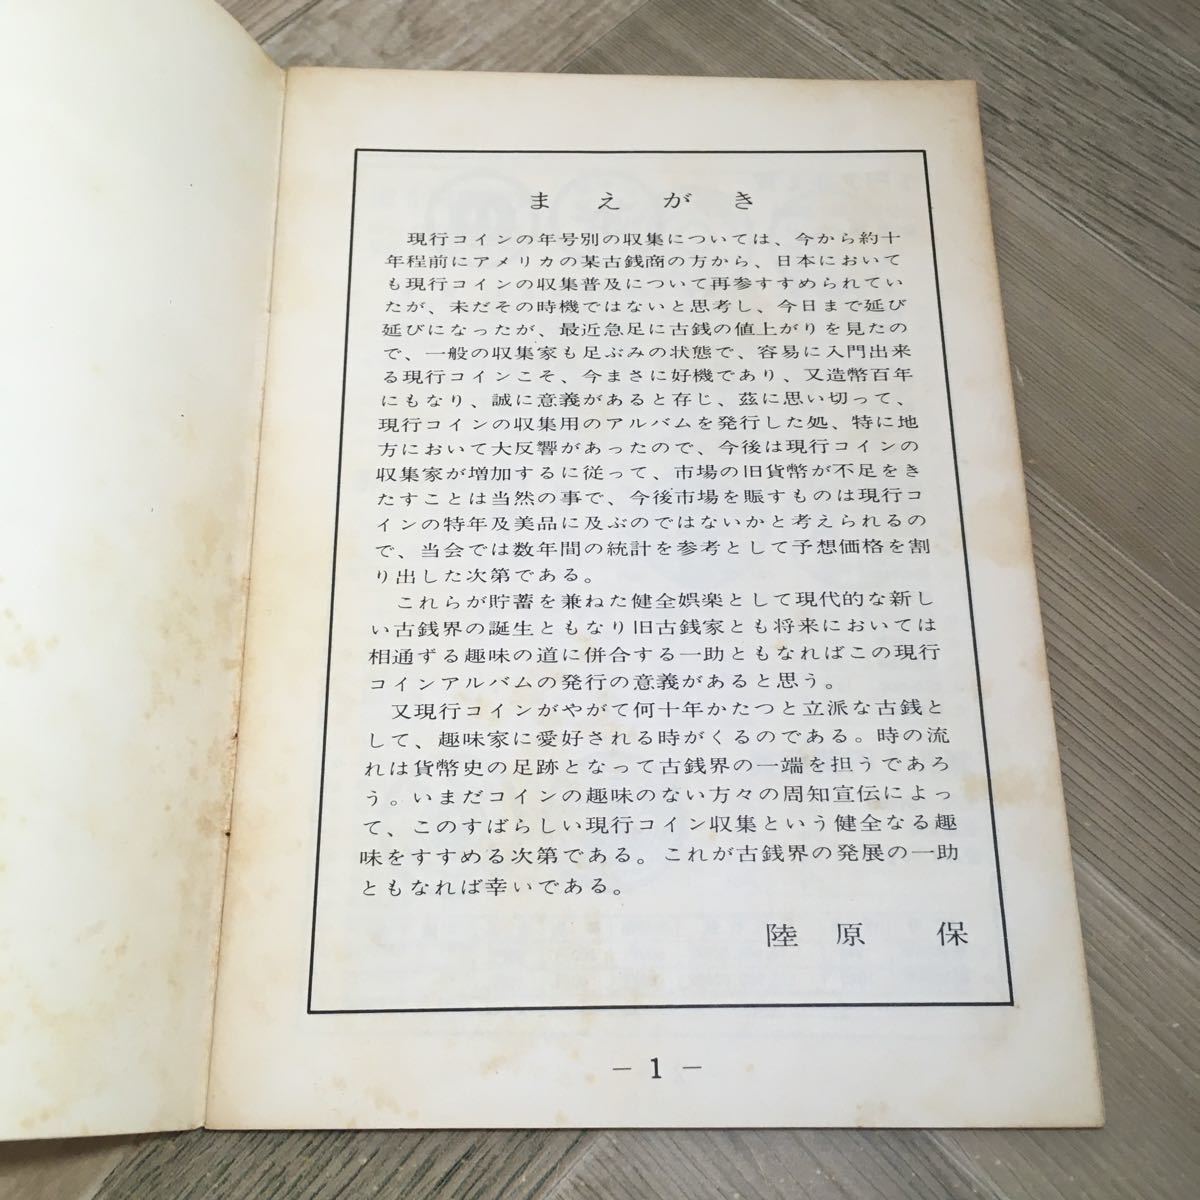 まえがき
現行コインの年号別の収集については、今から約十
年程前にアメリカの某古銭商の方から、日本において
も現行コインの収集普及について再参すすめられてい
たが、未だその時機ではないと思考し、今日まで延び
延びになったが、最近急足に古銭の値上がりを見たの
で、一般の収集家も足ぶみの状態で、容易に入門出来
る現行コインこそ、今まさに好機であり、又造幣百年
にもなり、誠に意義があると存じ、茲に思い切って、
現行コインの収集用のアルバムを発行した処、特に地
方において大反響があったので、今後は現行コインの
収集家が増加するに従って、市場の旧貨幣が不足をき
たすことは当然の事で、今後市場を賑すものは現行コ
インの特年及美品に及ぶのではないかと考えられるの
で、当会では数年間の統計を参考として予想価格を割
り出した次第である。
これらが貯蓄を兼ねた健全娯楽として現代的な新し
い古銭界の誕生ともなり旧古銭家とも将来においては
相通ずる趣味の道に併合する一助ともなればこの現行
コインアルバムの発行の意義があると思う。
又現行コインがやがて何十年かたつと立派な古銭と
して、趣味家に愛好される時がくるのである。時の流
れは貨幣史の足跡となって古銭界の一端を担うであろ
う。いまだコインの趣味のない方々の周知宣伝によっ
て、このすばらしい現行コイン収集という健全なる趣
味をすすめる次第である。これが古銭界の発展の一助
ともなれば幸いである。
陸原 保
－1－